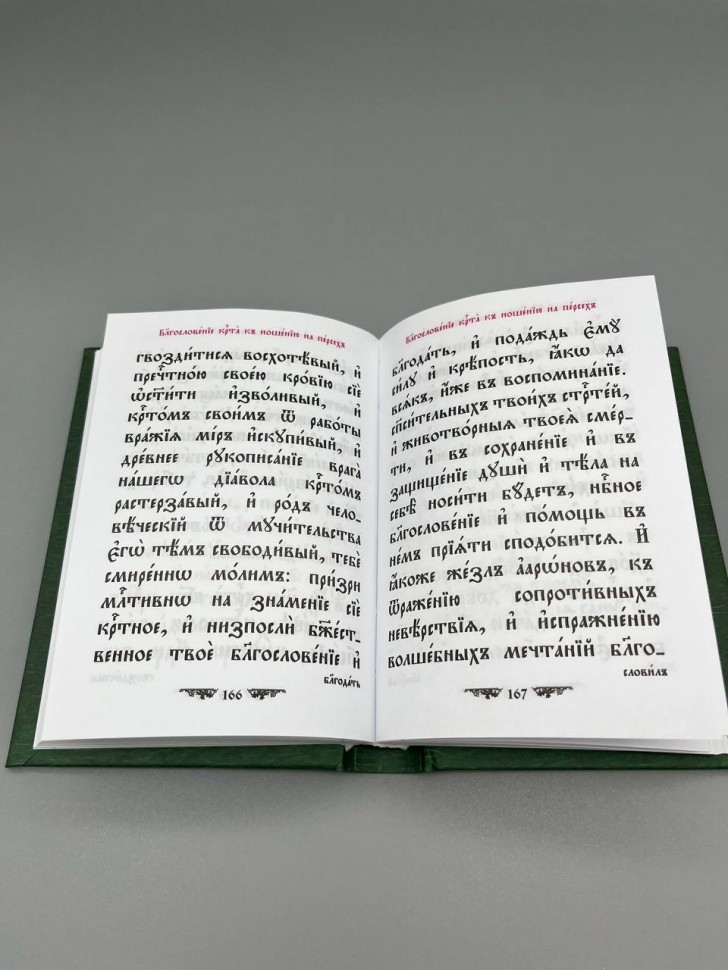 Бл҃гослове́нїе кр҇та̀ къ ноше́нїю на пе́рсехъ
гвозди́тисѧ восхотѣ́вый, и҆
пречⷭ҇тною свое́ю кро́вїю сїѐ
ѡ҆ст҃и́ти и҆зво́ливый, и҆
крⷭ҇то́мъ свои́мъ ѿ рабо́ты
вра́жїѧ мі́ръ и҆скупи́вый, и҆
дре́внее рꙋкописа́нїе врага̀
на́шегѡ дїа́вола крⷭ҇то́мъ
растерза́вый, и҆ ро́дъ чело-
вѣ́ческїй ѿ мꙋчи́тельства
є҆гѡ̀ тѣ́мъ свободи́вый, тебѐ
смире́ннѡ мо́лимъ: при́зри
млⷭ҇тивнѡ на зна́менїе сїѐ
крⷭ҇тное, и҆ низпослѝ бж҃е́ст-
венное твоѐ бл҃гослове́нїе и҆
бл҃года́ть
166
Бл҃гослове́нїе кр҇та̀ къ ноше́нїю на пе́рсехъ
бл҃года́ть, и҆ пода́ждь є҆мꙋ̀
си́лꙋ и҆ крѣ́пость, ꙗ҆́кѡ да
всѧ́къ, и҆́же въ воспомина́нїе.
сп҃си́тельныхъ твои́хъ стрⷭ҇те́й,
и҆ животво́рныѧ твоеѧ̀ сме́р-
ти, и҆ въ сохране́нїе и҆ въ
защище́нїе дꙋшѝ и҆ тѣ́ла на
себѣ̀ носи́ти бꙋ́детъ, нбⷭ҇ное
бл҃гослове́нїе и҆ по́мощь въ
не́мъ прїѧ́ти сподо́битсѧ. И҆
ꙗ҆́коже же́злъ а҆арѡ́новъ, къ
ѿраже́нїю сопроти́вныхъ
невѣ́рствїѧ, и҆ и҆спражне́нїю
волше́бныхъ мечта́нїй бл҃го-
слови́лъ
167